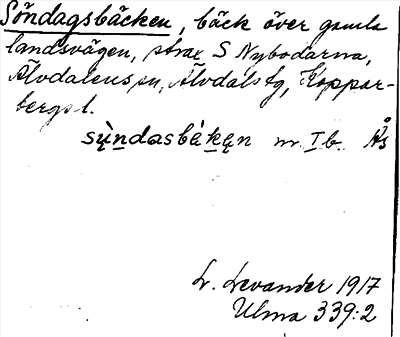 Söndagsbäcken, bäck över gamla
landsvägen, strax S Nybodarna,
Älvdalens sn, Älvdals tg, Koppar-
bergs l.
sùndasbàkęn nr. Ib. Ås
L. Levander 1917
Ulma 339:2